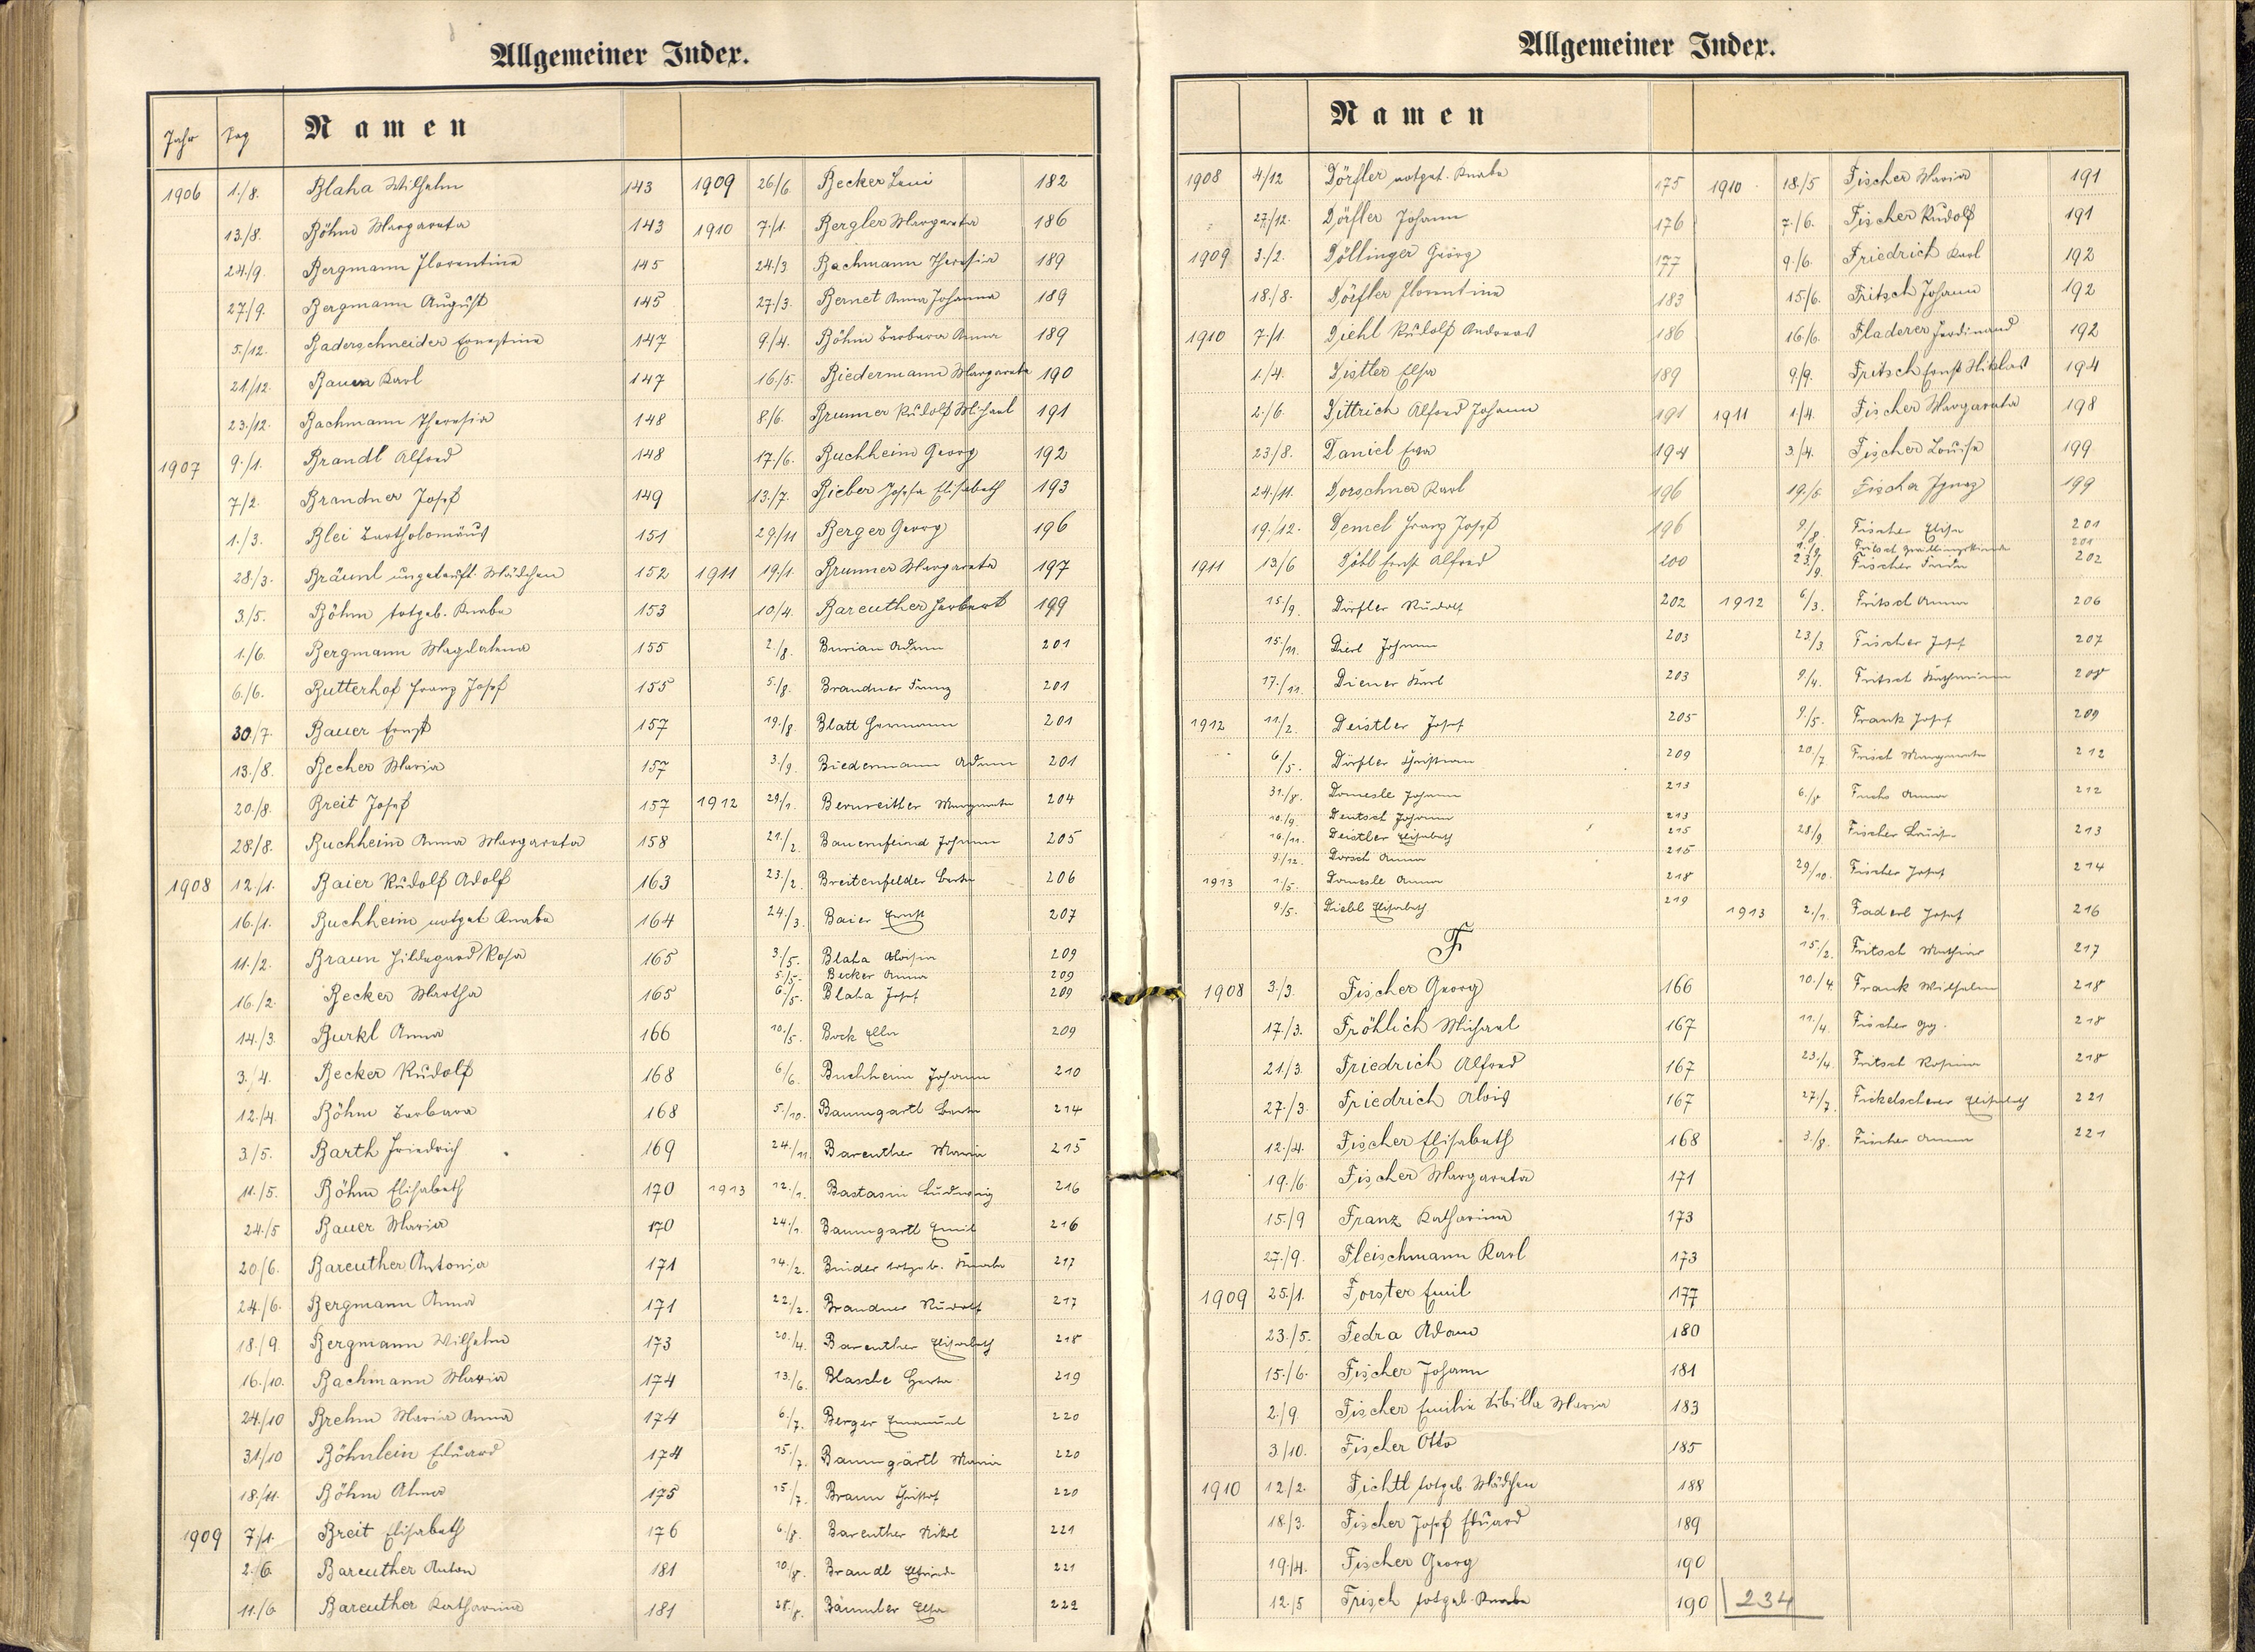 Allgemeiner Index.
Jahr Tag Namen
1906 1./8. Blaha Wilhelm 143
13./8. Böhm Margareta 143
24./9. Bergmann Florentine 145
27./9. Bergmann August 145
5./12. Baderschneider Ernestine 147
21./12. Bauer Karl 147
23./12. Bachmann Theresia 148
1907 9./1. Brandl Alfred 148
7/2. Brandner Josef 149
1./3. Blei Bartholomäus 151
28/3. Bräunl ungetauft. Mädchen 152
3./5. Böhm totgeb. Knabe 153
1./6. Bergmann Magdalena 155
6./6. Butterhof Franz Josef 155
30./7. Bauer Ernst 157
13./8. Becher Maria 157
20./8. Breit Josef 157
28/8. Buchheim Anna Margareta 158
1908 12./1. Baier Rudolf Adolf 163
16./1. Buchheim notget Knabe 164
11./2. Braun Hildegard Rosa 165
16./2. Becker Martha 165
14./3. Burkl Anna 166
3./4. Becker Rudolf 168
12./4. Böhm Barbara 168
3./5. Barth Friedrich 169
11./5. Böhm Elisabeth 170
24./5 Bauer Maria 170
20/6. Bareuther Antonia 171
24./6. Bergmann Anna 171
18./9. Bergmann Wilhelm 173
16./10. Bachmann Maria 174
24./10 Brehm Maria Anna 174
31./10 Böhnlein Eduard 174
18./11. Böhm Alma 175
1909 7./1. Breit Elisabeth 176
2./6. Bareuther Anton 181
11./6 Bareuther Katharina 181
1909 26/6 Becker Leni 182
1910 7./1. Bergler Margareta 186
24./3 Bachmann Theresia 189
27./3. Bernet Anna Johanna 189
9./4. Böhm Barbara Anna 189
16./5. Biedermann Margareta 190
8./6. Brunner Rudolf Michael 191
17./6. Buchheim Georg 192
13./7. Bieber Josefa Elisabeth 193
29./11 Berger Georg 196
1911 19./1. Brunner Margareta 197
10/4. Bareuther Herbert 199
2./8. Burian Adam 201
5./8. Brandner Franz 201
19./8. Blatt Hermann 201
3./9. Biedermann Adam 201
1912 29/1. Bernreither Margareta 204
21./2. Bauernfeind Johann 205
23./2. Breitenfelder Berta 206
24./3. Baier Ernst 207
3./5. Blaha Aloisia 209
5./5. Becker Anna 209
6./5. Blaha Josef 209
10./5. Bock Ella 209
6/6. Buchheim Johann 210
5./10. Baumgartl Berta 214
24./11. Bareuther Maria 215
1913 12./1. Bastasin Ludwig 216
24/1. Baumgartl Emil 216
14./2. Binder totgeb. Knabe 217
22./2. Brandner Rudolf 217
20./4. Bareuther Elisabeth 218
13./6. Blasche Herta 219
6./7. Berger Emanuel 220
15./7. Baumgärtl Maria 220
15./7. Braun Christof 220
6./8. Bareuther Nikol 221
10/8. Brandl Elfriede 221
28./8. Bäumler Elsa 222
Allgemeiner Index.
Namen
1908 4/12 Dörfler notget. Knabe 175
27./12. Dörfler Johann 176
1909 3./2. Döllinger Georg 177
18./8. Dörfler Florentine 183
1910 7./1. Diehl Rudolf Andreas 186
1./4. Distler Elsa 189
2./6. Dittrich Alfred Johann 191
23/8. Daniel Eva 194
24./11. Dorschner Karl 196
19./12. Demel Franz Josef 196
1911 13./6 Döbl Ernst Alfred 200
15./9. Dörfler Rudolf 202
15./11. Dierl Johann 203
17./11. Diener Karl 203
1912 11./2. Deistler Josef 205
6/5. Dörfler Christian 209
31./8. Domesle Johann 213
10./9. Deutsch Johann 213
16./11. Deistler Elisabeth 215
9./12. Dorsch Anna 215
1913 1./5. Domesle Anna 218
9./5. Diebl Elisabeth 219
F
1908 3./3. Fischer Georg 166
17./3. Fröhlich Michael 167
21./3. Friedrich Alfred 167
27./3. Friedrich Alois 167
12./4. Fischer Elisabeth 168
19./6. Fischer Margareta 171
15./9 Franz Katharina 173
27./9. Fleischmann Karl 173
1909 25./1. Forster Emil 177
23./5. Fedra Adam 180
15./6. Fischer Johann 181
2./9. Fischer Emilie Sibilla Maria 183
3/10. Fischer Otto 185
1910 12/2. Fichtl totgeb Mädchen 188
18./3. Fischer Josef Eduard 189
19/4. Fischer Georg 190
12./5 Frisch totgeb. Knabe 190
234
1910 18./5 Fischer Maria 191
7./6. Fischer Rudolf 191
9./6. Friedrich Karl 192
15./6. Fritsch Johann 192
16./6. Fladerer Ferdinand 192
9/9. Fritsch Ernst Niklas 194
1911 1./4. Fischer Margareta 198
3./4. Fischer Louise 199
19./5 Fischer Ignaz 199
9./8. Fischer Elise 201
Fritsch Zwillingskinder 201
23./9. Fischer 202
1912 6/3. Fritsch Anna 206
23./3. Fischer Josef 207
9/4. Fritsch Katharina 208
9./5. Frank Josef 209
20./7 Frisch Margareta 212
6./8 Fuchs Anna 212
28/9. Fischer Luise 213
29/10. Fischer Josef 214
1913 2./1. Faderl Josef 216
15./2. Fritsch Mathias 217
10./4 Frank Wilhelm 218
11./4. Fischer Gg. 218
23./4. Fritsch Rosina 218
27/7. Fickelscherer Elisabeth 221
3./8. Fischer Anna 221